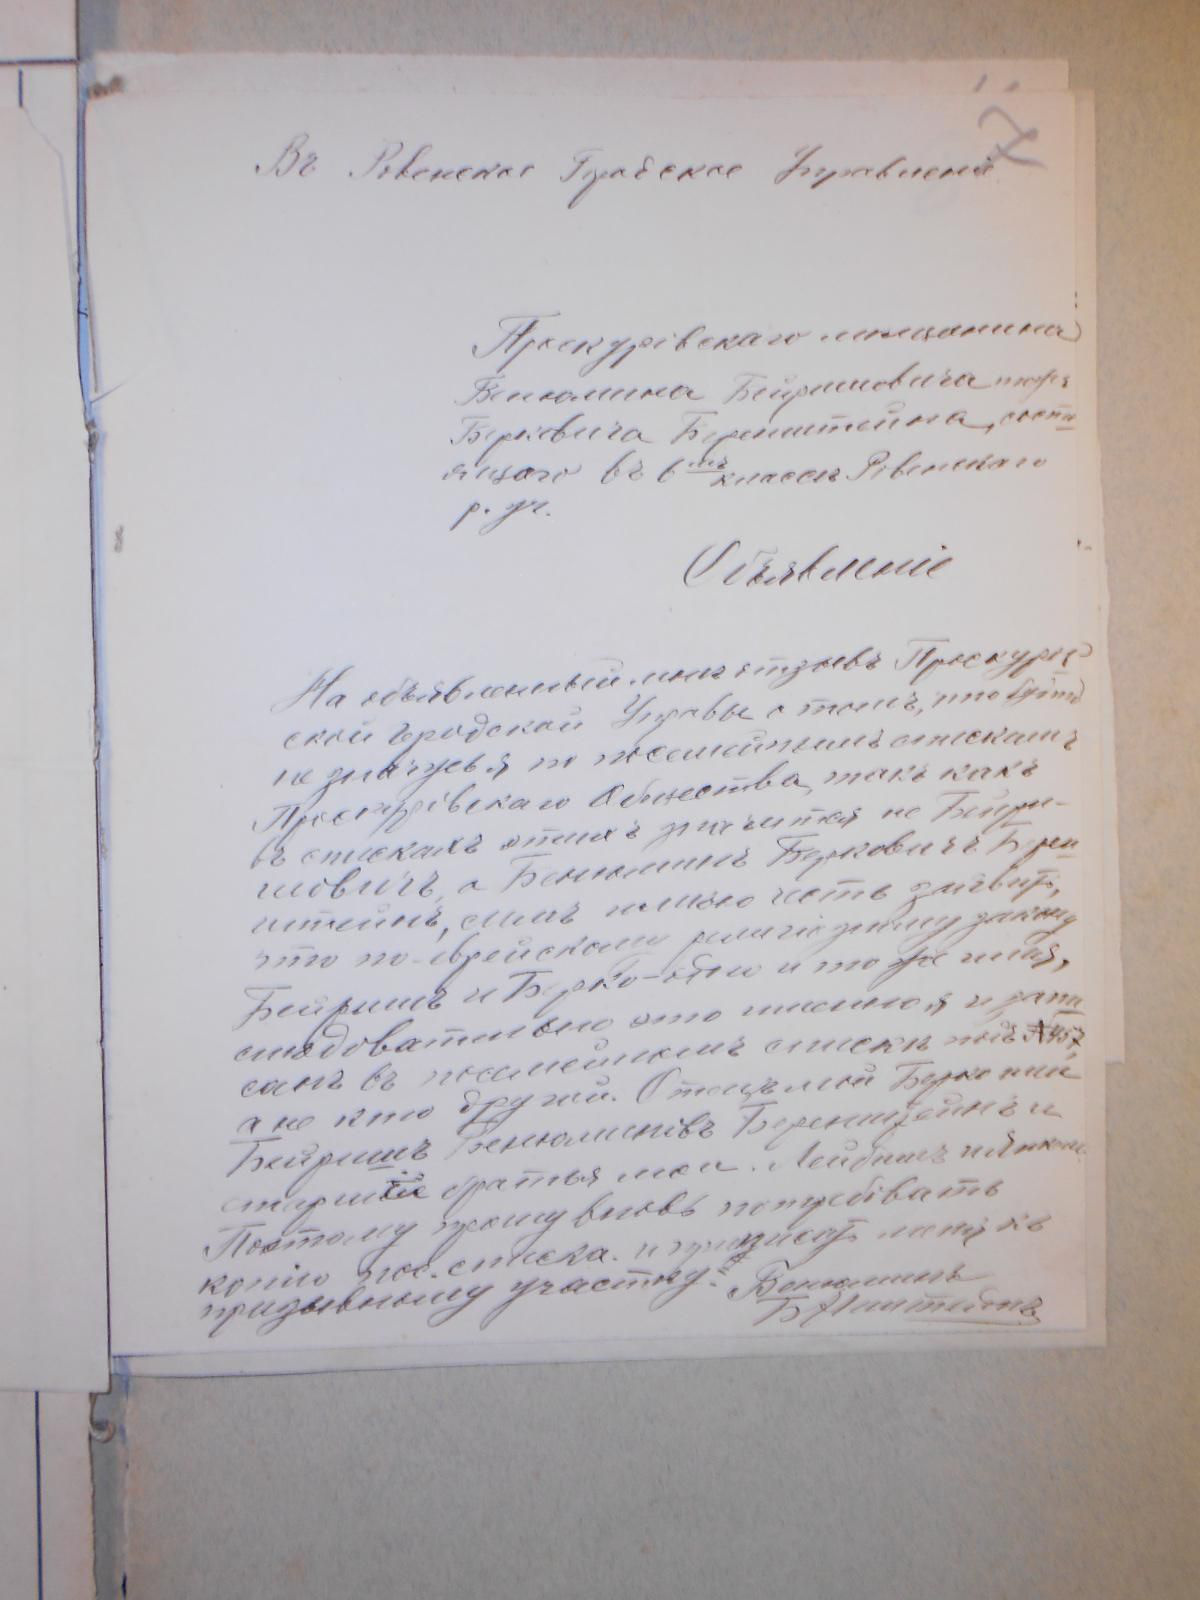 7
Въ Ровенское Городское Управленіе
Проскуровскаго мѣщанина
Бенюмина Бейришовича тожъ
Берковича Беренштейна, состо
ящаго въ 6мъ классѣ Ровенскаго
р. уч.
Объявленіе
На объявленный мнѣ отзывъ Проскуров
ской Городской Управы о томъ, что будто
не значусь я по посемейнымъ спискамъ
Проскуровскаго Общества, такъ какъ
въ спискахъ этихъ значится не Бейри-
шовичъ, а Бенюминъ Берковичъ Берен
штейнъ, симъ имѣю честь заявить,
что по-еврейскому религіозному закону
Бейришъ и Берко-одно и то же имя,
слѣдовательно это именно я и запи
санъ въ посемейномъ спискѣ подъ №457,
а не кто другой. Отецъ мой Берко или
Бейришъ Бенюминовъ Беренштейнъ и
старшіе братья мои. Лейбишъ и Янкель.
Поэтому прошу вновь потребовать
копію пос. списка. и приписать меня къ
призывному участку. Бенюминъ
Беренштейнъ